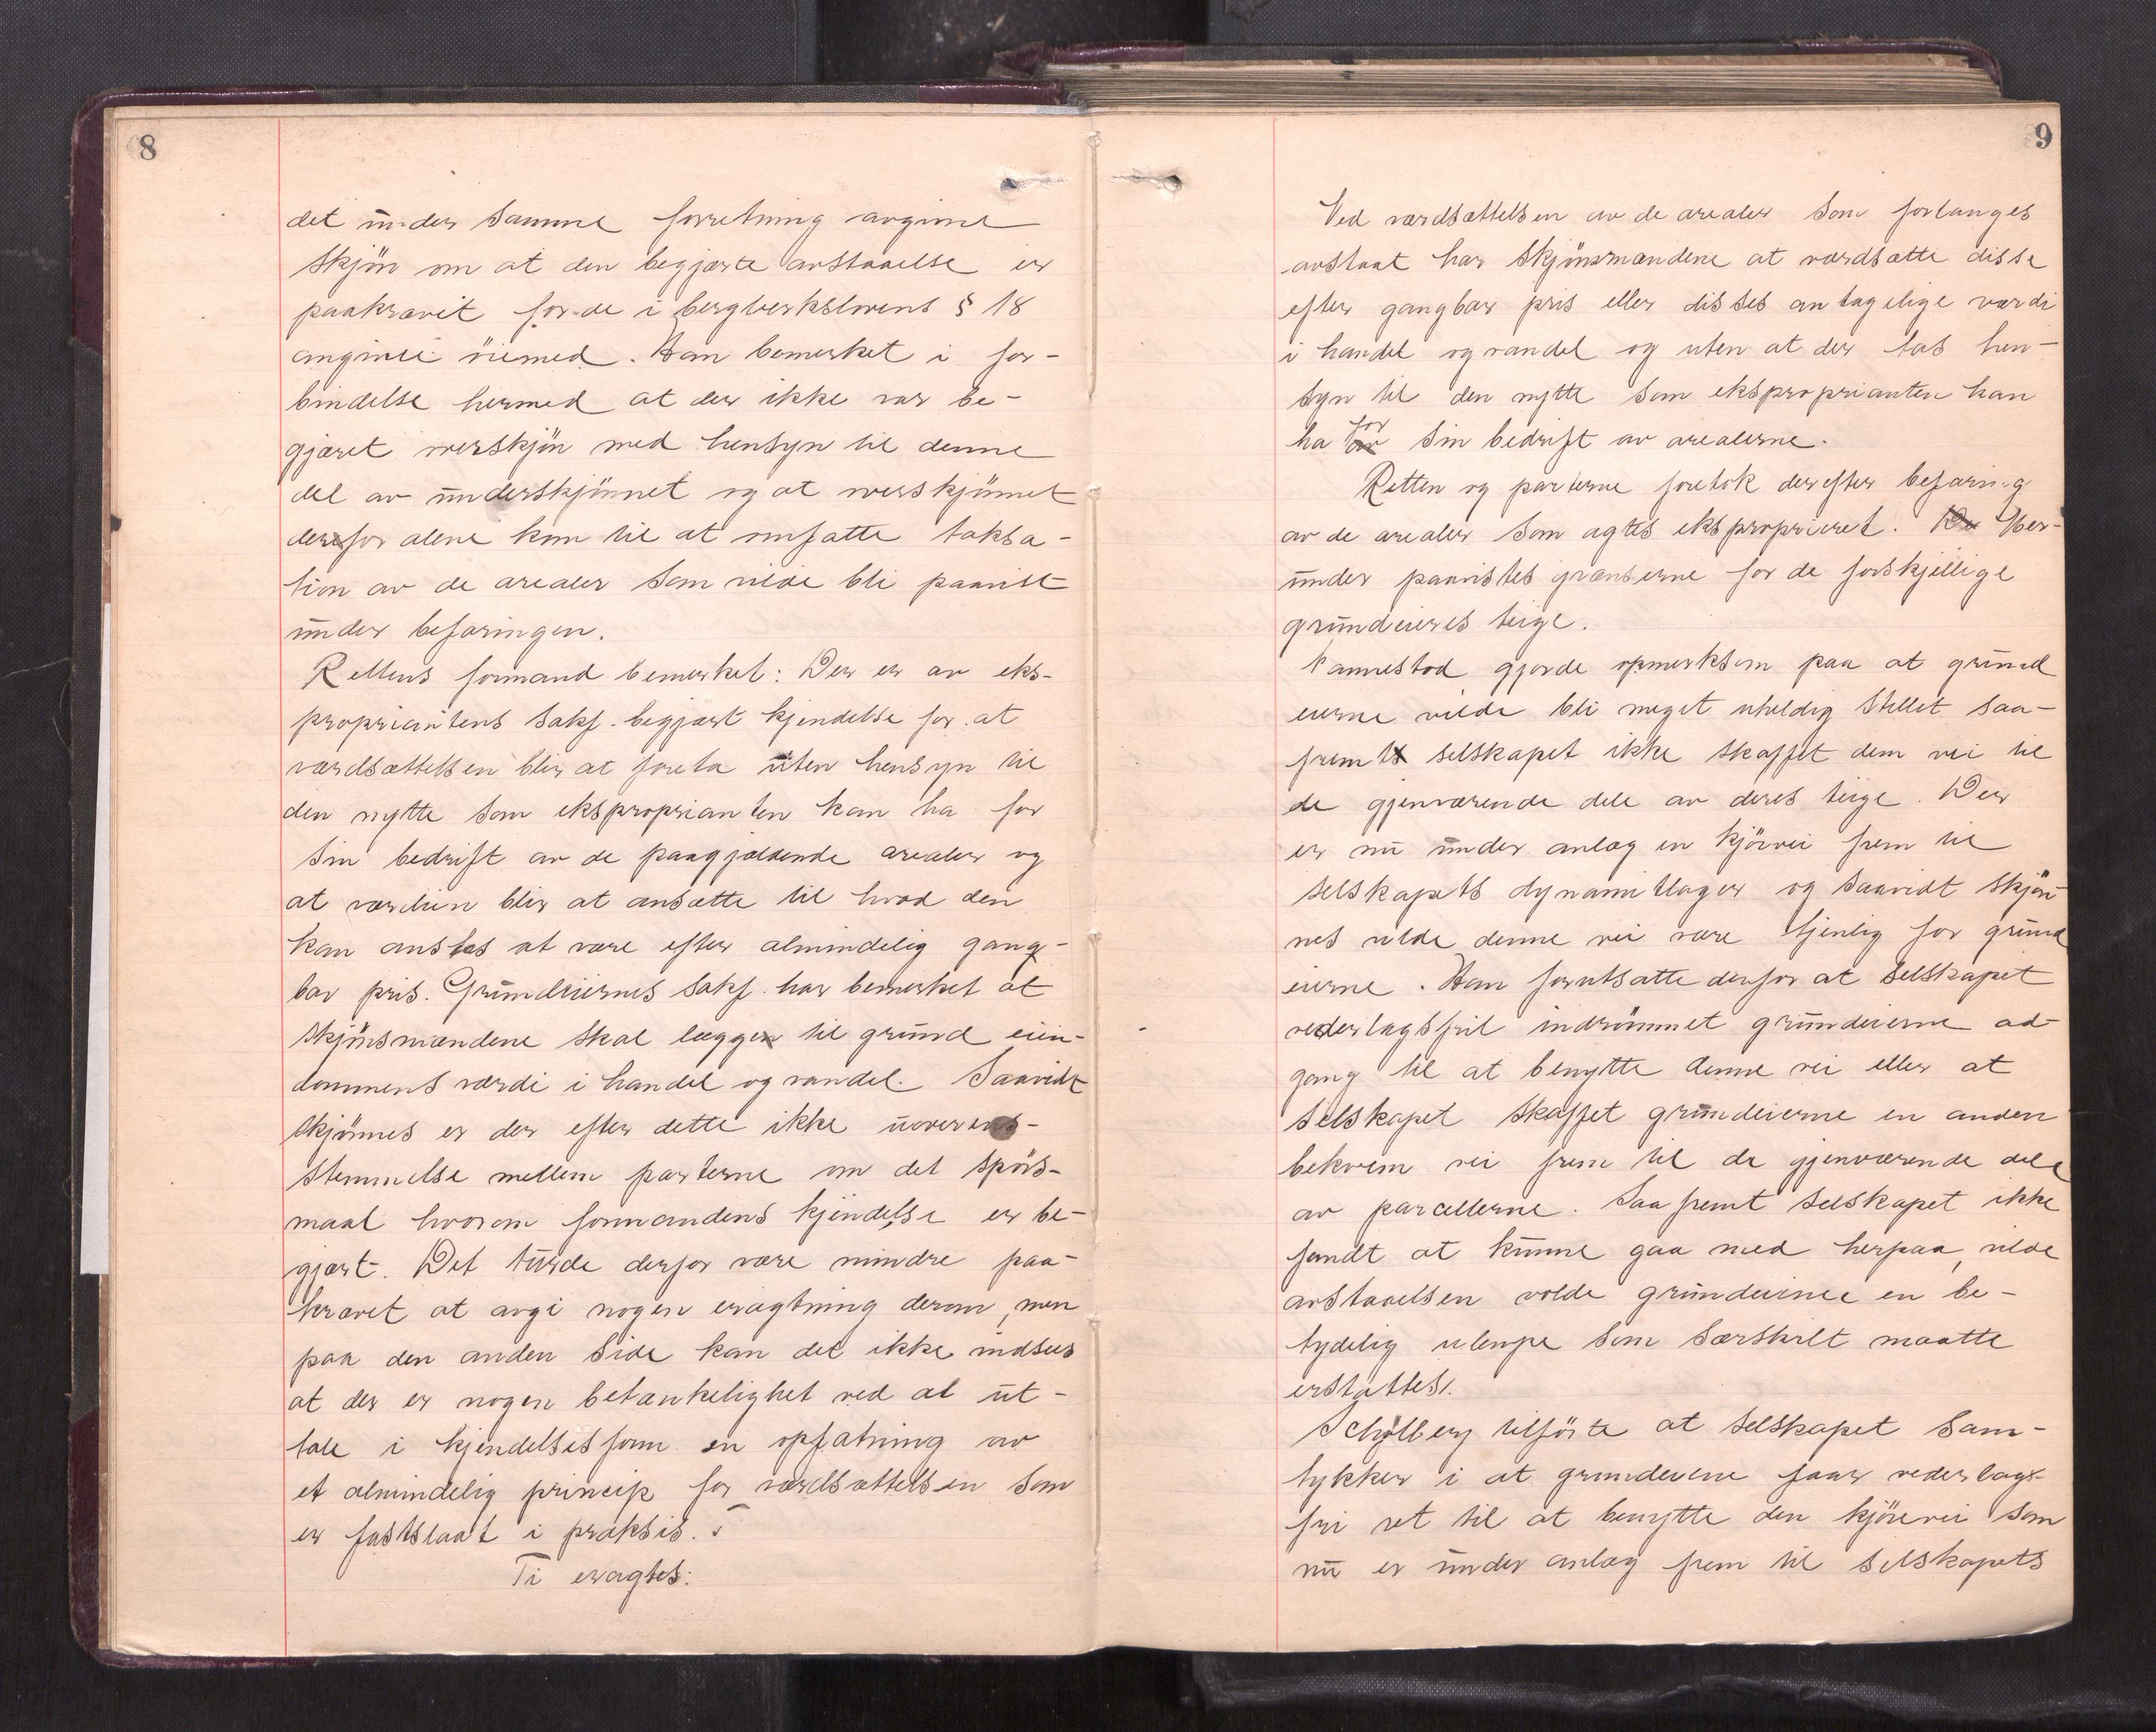 8
det under samme forretning avgivne
skjön om at den begjærte avstaaelse er
paakrævet for de i bergverkslovens § 18
angivne öiemed. Han bemerket i for-
bindelse hermed at der ikke var be-
gjæret overskjön med hensyn til denne
del av underskjönnet og at overskjönnet
derfor alene kom til at omfatte taksa-
tion av de arealer som vilde bli paavist
under befaringen.
Rettens formand bemerket: Der er av eks-
propriantens sakf. begjært kjendelse for at
værdsættelsen blir at foreta uten hensyn til
den nytte som eksproprianten kan ha for
sin bedrift av de paagjældende arealer og
at værdien blir at ansætte til hvad den
kan ansees at være efter almindelig gang-
bar pris. Grundeiernes sakf. har bemerket at
skjönsmændene skal lægge til grund eien-
dommens værdi i handel og vandel. Saavidt
skjönnes er der efter dette ikke uoverens-
stemmelse mellem parterne om det spörs-
maal hvorom formandens kjendelse er be-
gjært. Det turde derfor være mindre paa-
krævet at avgi nogen eragtning derom, men
paa den anden side kan det ikke indsees
at der er nogen betænkelighet ved at ut-
tale i kjendelses form en opfatning av
et almindelig princip for værdsættelsen som
er fastslaat i praksis.
Ti eragtes:
9
Ved værdsættelsen av de arealer som forlanges
avstaat har skjönsmændene at værdsætte disse
efter gangbar pris eller disses antagelige værdi
i handel og vandel og uten at der tas hen-
syn til den nytte som eksproprianten kan
ha for sin bedrift av arealerne.
Retten og parterne foretok derefter befaring
av de arealer som agtes ekspropriert. Her-
under paavistes grænserne for de forskjellige
grundeieres teige.
Vannestad gjorde opmerksom paa at grund
eierne vilde bli meget uheldig stillet saa-
fremt selskapet ikke skaffet dem vei til
de gjenværende dele av deres teige. Der
er nu under anlæg en kjörvei frem til
selskapets dynamitlager og saavidt skjön-
nes vilde denne vei være tjenlig for grund
eierne. Han forutsatte derfor at selskapet
vederlagsfrit indrömmet grundeierne ad-
gang til at benytte denne vei eller at
selskapet skaffet grundeierne en anden
bekvem vei frem til de gjenværende dele
av parcellerne. Saafremt selskapet ikke
fandt at kunne gaa med herpaa, vilde
avstaaelsen volde grundeierne en be-
tydelig ulempe som særskilt maatte
erstattes.
Schjölberg tilförte at selskapet sam-
tykker i at grundeierne faar vederlags-
fri ret til at benytte den kjörevei som
nu er under anlæg frem til selskapets